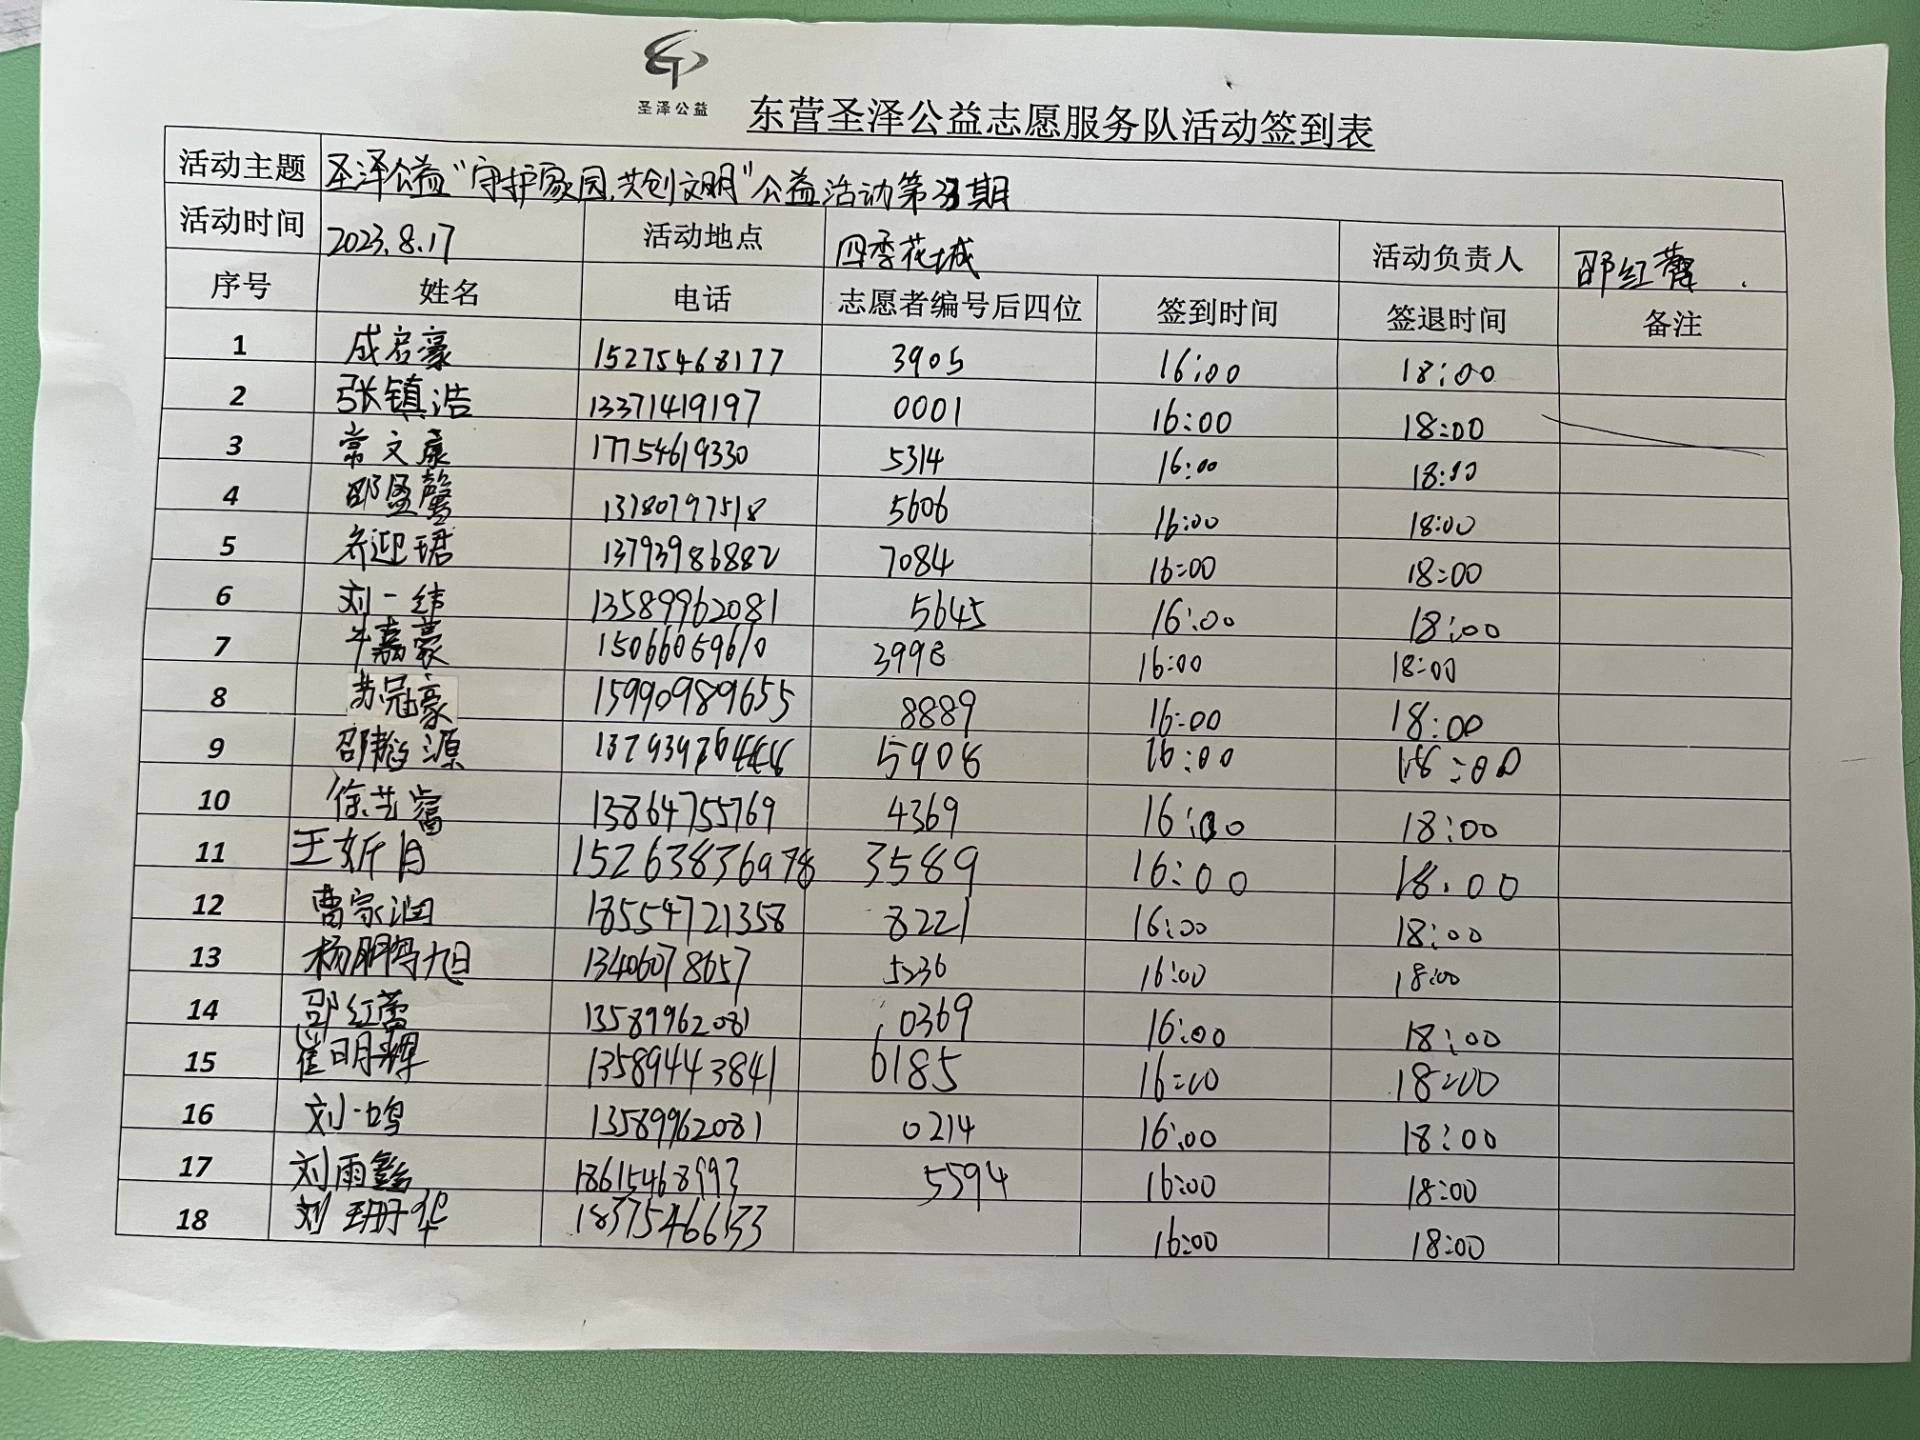 圣泽公益
东营圣泽公益志愿服务队活动签到表
活动主题 圣泽公益“守护家园,共创文明”公益活动第 期
活动时间 2023.8.17 活动地点 四季花城 活动负责人 邵红蕾
序号 姓名 电话 志愿者编号后四位 签到时间 签退时间 备注
1 成启豪 15275468177 3905 16:00 18:00
2 张镇浩 13371419197 0001 16:00 18:00
3 常文康 17754619330 5314 16:00 18:00
4 邵盈馨 13780797518 5606 16:00 18:00
5 乔迎珺 13793986882 7084 16:00 18:00
6 刘一纬 13589962081 5645 16:00 18:00
7 牛嘉豪 15066059610 3998 16:00 18:00
8 苏冠豪 15990989655 8889 16:00 18:00
9 邵韵源 5906 16:00 18:00
10 徐艺 13864755769 4369 16:00 18:00
11 王妡月 15263836978 3589 16:00 18:00
12 曹家润 18554721358 8221 16:00 18:00
13 杨鹏旭 13406078657 5236 16:00 18:00
14 邵红蕾 13589962081 0369 16:00 18:00
15 崔明辉 13589443841 6185 16:00 18:00
16 刘一鸣 13589962081 0214 16:00 18:00
17 刘雨鑫 18615468993 5594 16:00 18:00
18 刘珊华 18375466133 16:00 18:00